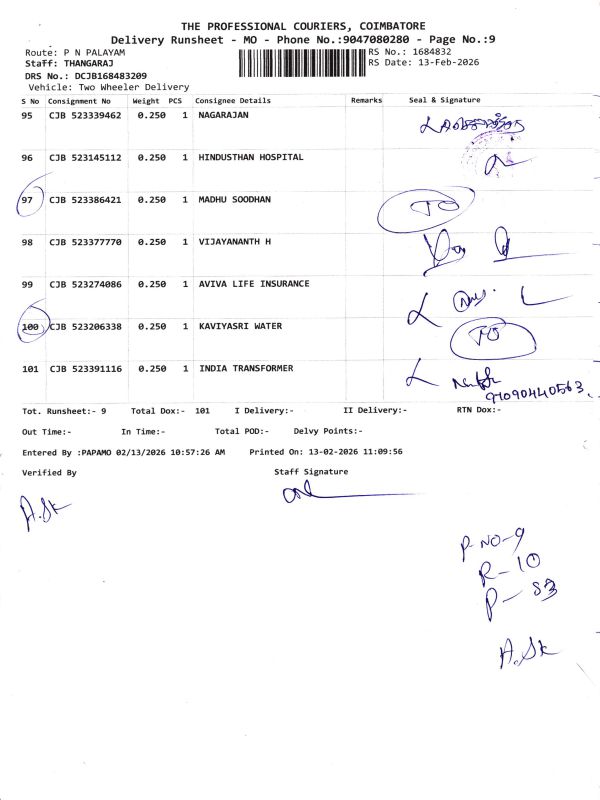 THE PROFESSIONAL COURIERS, COIMBATORE
Delivery Runsheet - MO - Phone No.:9047080280 - Page No.:9
Route: P N PALAYAM RS No.: 1684832
Staff: THANGARAJ RS Date: 13-Feb-2026
DRS No.: DCJB168483209
Vehicle: Two Wheeler Delivery
S No Consignment No Weight PCS Consignee Details Remarks Seal & Signature
95 CJB 523339462 0.250 1 NAGARAJAN
96 CJB 523145112 0.250 1 HINDUSTHAN HOSPITAL
97 CJB 523386421 0.250 1 MADHU SOODHAN TO
98 CJB 523377770 0.250 1 VIJAYANANTH H
99 CJB 523274086 0.250 1 AVIVA LIFE INSURANCE
100 CJB 523206338 0.250 1 KAVIYASRI WATER TO
101 CJB 523391116 0.250 1 INDIA TRANSFORMER
91090440563.
Tot. Runsheet:- 9 Total Dox:- 101 I Delivery:- II Delivery:- RTN Dox:-
Out Time:- In Time:- Total POD:- Delvy Points:-
Entered By :PAPAMO 02/13/2026 10:57:26 AM Printed On: 13-02-2026 11:09:56
Verified By Staff Signature
A.Sk
P-NO-9
R-10
P-83
A.Sk